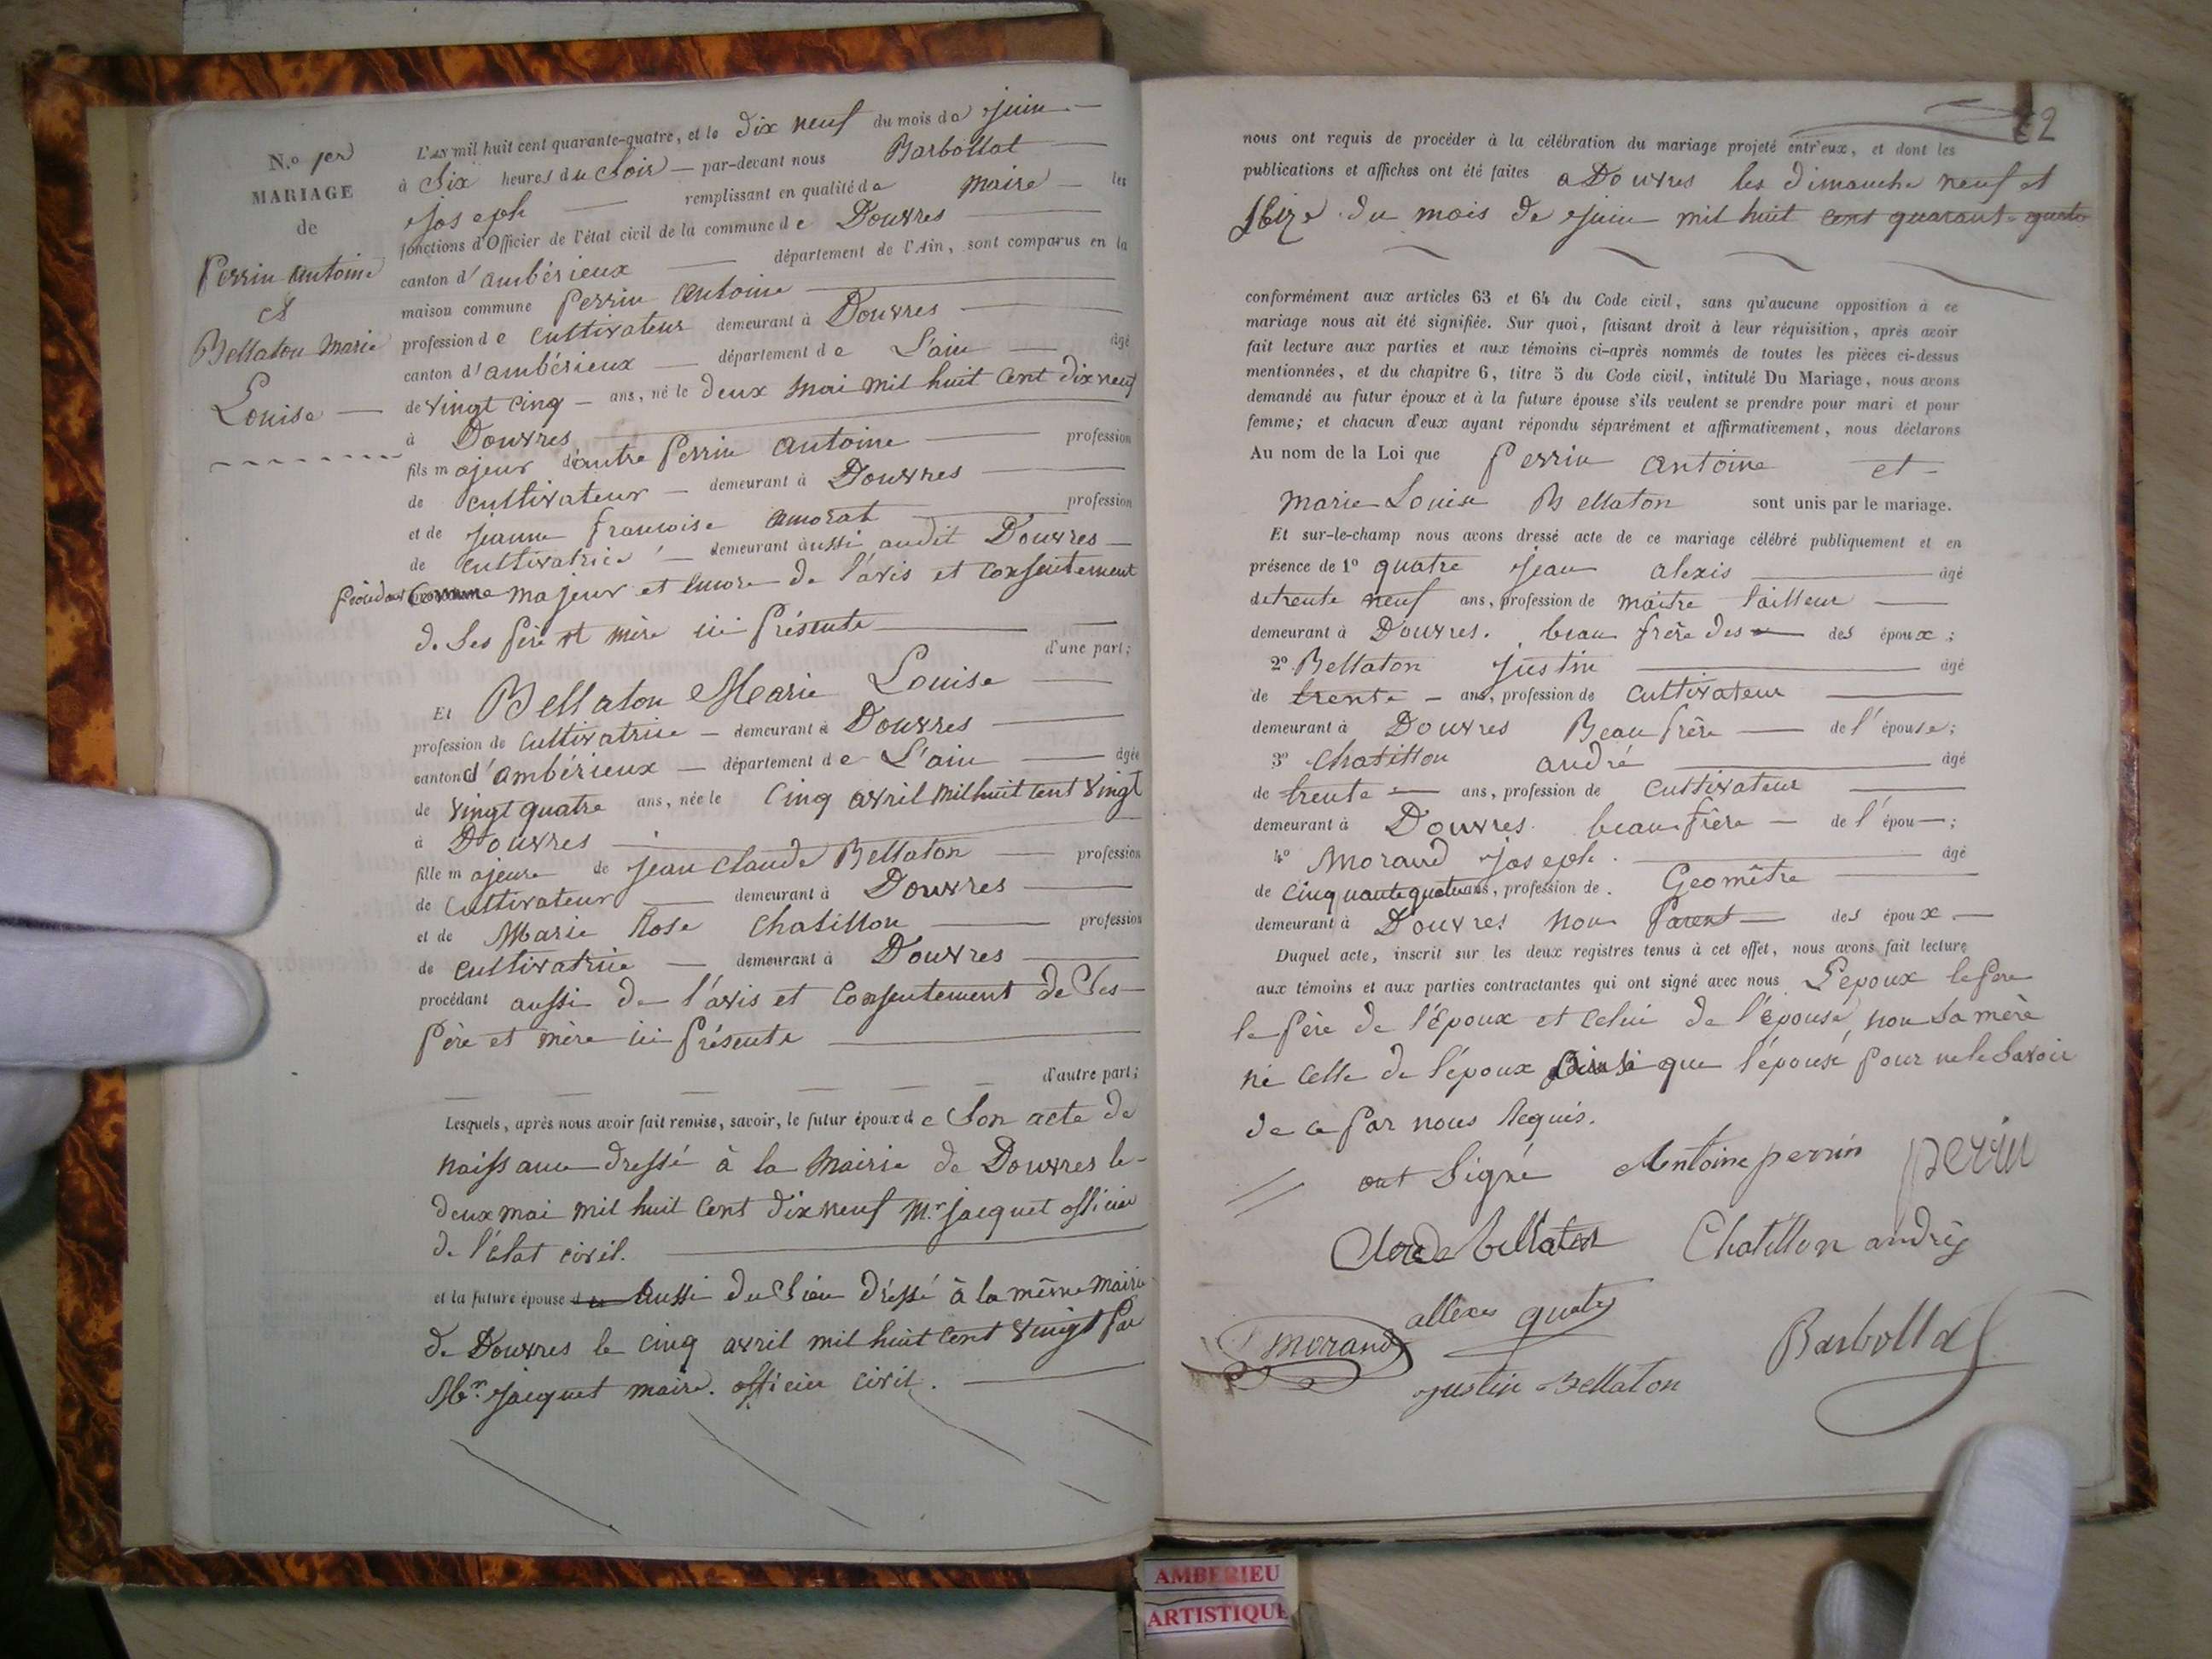 N.o 1er
MARIAGE
de
Perrin antoine
et
Bellaton Marie
Louise
L'an mil huit cent quarante-quatre, et le dix neuf du mois de juin
à Six heures du Soir par-devant nous Barbollat
joseph remplissant en qualité de maire les
fonctions d'Officier de l'état civil de la commune de Douvres
canton d'ambérieux département de l'Ain, sont comparus en la
maison commune Perrin antoine
profession de cultivateur demeurant à Douvres
canton d'ambérieux département de L'ain âgé
de vingt cinq ans, né le deux mai mil huit cent dix neuf
à Douvres
fils majeur d'autre Perrin antoine profession
de cultivateur demeurant à Douvres
et de jeanne francoise amorat profession
de cultivatrice demeurant aussi audit Douvres
procédant comme majeur et encore de l'avis et consentement
de Ses père et mère ici présents
d'une part;
Et Bellaton Marie Louise
profession de cultivatrice demeurant à Douvres
canton d'ambérieux département de L'ain âgée
de vingt quatre ans, née le cinq avril mil huit cent vingt
à Douvres
fille majeure de jean claude Bellaton profession
de cultivateur demeurant à Douvres
et de Marie Rose chatillon profession
de cultivatrice demeurant à Douvres
procédant aussi de l'avis et consentement de Ses
père et mère ici présents
d'autre part;
Lesquels, après nous avoir fait remise, savoir, le futur époux de Son acte de
naissance dressé à la Mairie de Douvres le
deux mai mil huit cent dix neuf Mr jacquet officier
de l'état civil.
et la future épouse aussi du Sien dréssé à la même mairie
de Douvres le cinq avril mil huit cent vingt par
Mr jacquet maire officier civil.
62
nous ont requis de procéder à la célébration du mariage projeté entr'eux, et dont les
publications et affiches ont été faites a Douvres les dimanche neuf et
Seize du mois de juin mil huit cent quarant-quatre
conformément aux articles 63 et 64 du Code civil, sans qu'aucune opposition à ce
mariage nous ait été signifiée. Sur quoi, faisant droit à leur réquisition, après avoir
fait lecture aux parties et aux témoins ci-après nommés de toutes les pièces ci-dessus
mentionnées, et du chapitre 6, titre 5 du Code civil, intitulé Du Mariage, nous avons
demandé au futur époux et à la future épouse s'ils veulent se prendre pour mari et pour
femme; et chacun d'eux ayant répondu séparément et affirmativement, nous déclarons
Au nom de la Loi que Perrin antoine et
marie Louise Bellaton sont unis par le mariage.
Et sur-le-champ nous avons dressé acte de ce mariage célébré publiquement et en
présence de 1º quatre jean alexis âgé
de trente neuf ans, profession de maitre tailleur
demeurant à Douvres. beau frère des des époux;
2º Bellaton justin âgé
de trente ans, profession de cultivateur
demeurant à Douvres Beau frère de l'épouse;
3º Chatillon andré âgé
de trente ans, profession de cultivateur
demeurant à Douvres. beau frère de l'épou;
4º Morand joseph. âgé
de cinquante quatre ans, profession de Geomêtre
demeurant à Douvres non parent des époux.
Duquel acte, inscrit sur les deux registres tenus à cet effet, nous avons fait lecture
aux témoins et aux parties contractantes qui ont signé avec nous L'époux le père
le père de l'époux et celui de l'épouse, non sa mère
ni celle de l'époux ainsi que l'épouse pour ne le savoir
de ce par nous Requis.
ont Signé Antoine perrin perrin
Claude bellaton Chatillon andré
morand allexis quatre Barbollat
justin Bellaton
AMBERIEU
ARTISTIQUE